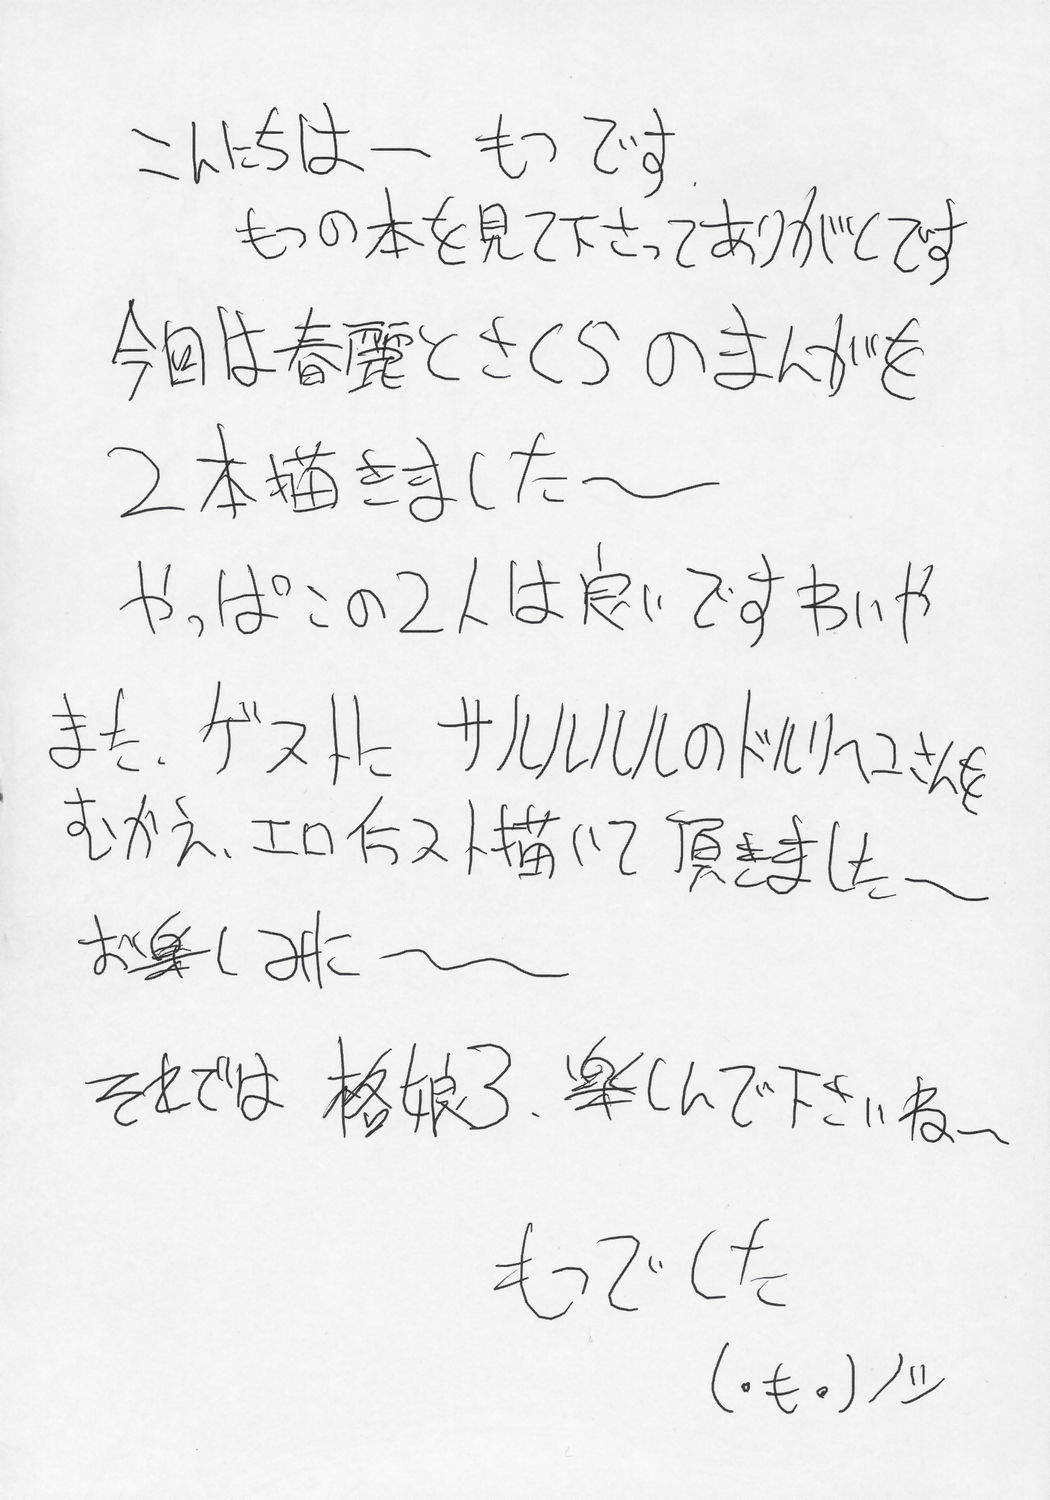 こんにちはー もつです.
もつの本を見て下さってありがとです
今回は春麗とさくらのまんがを
2本描きました〜
やっぱこの2人は良いですわいや
また、ゲストに サルルルルのドルリヘユさんを
むかえ、エロイラスト描いて頂きました〜
お楽しみに〜
それでは 格娘3、楽しんで下さいねー
もつでした
(・も・)ノシ